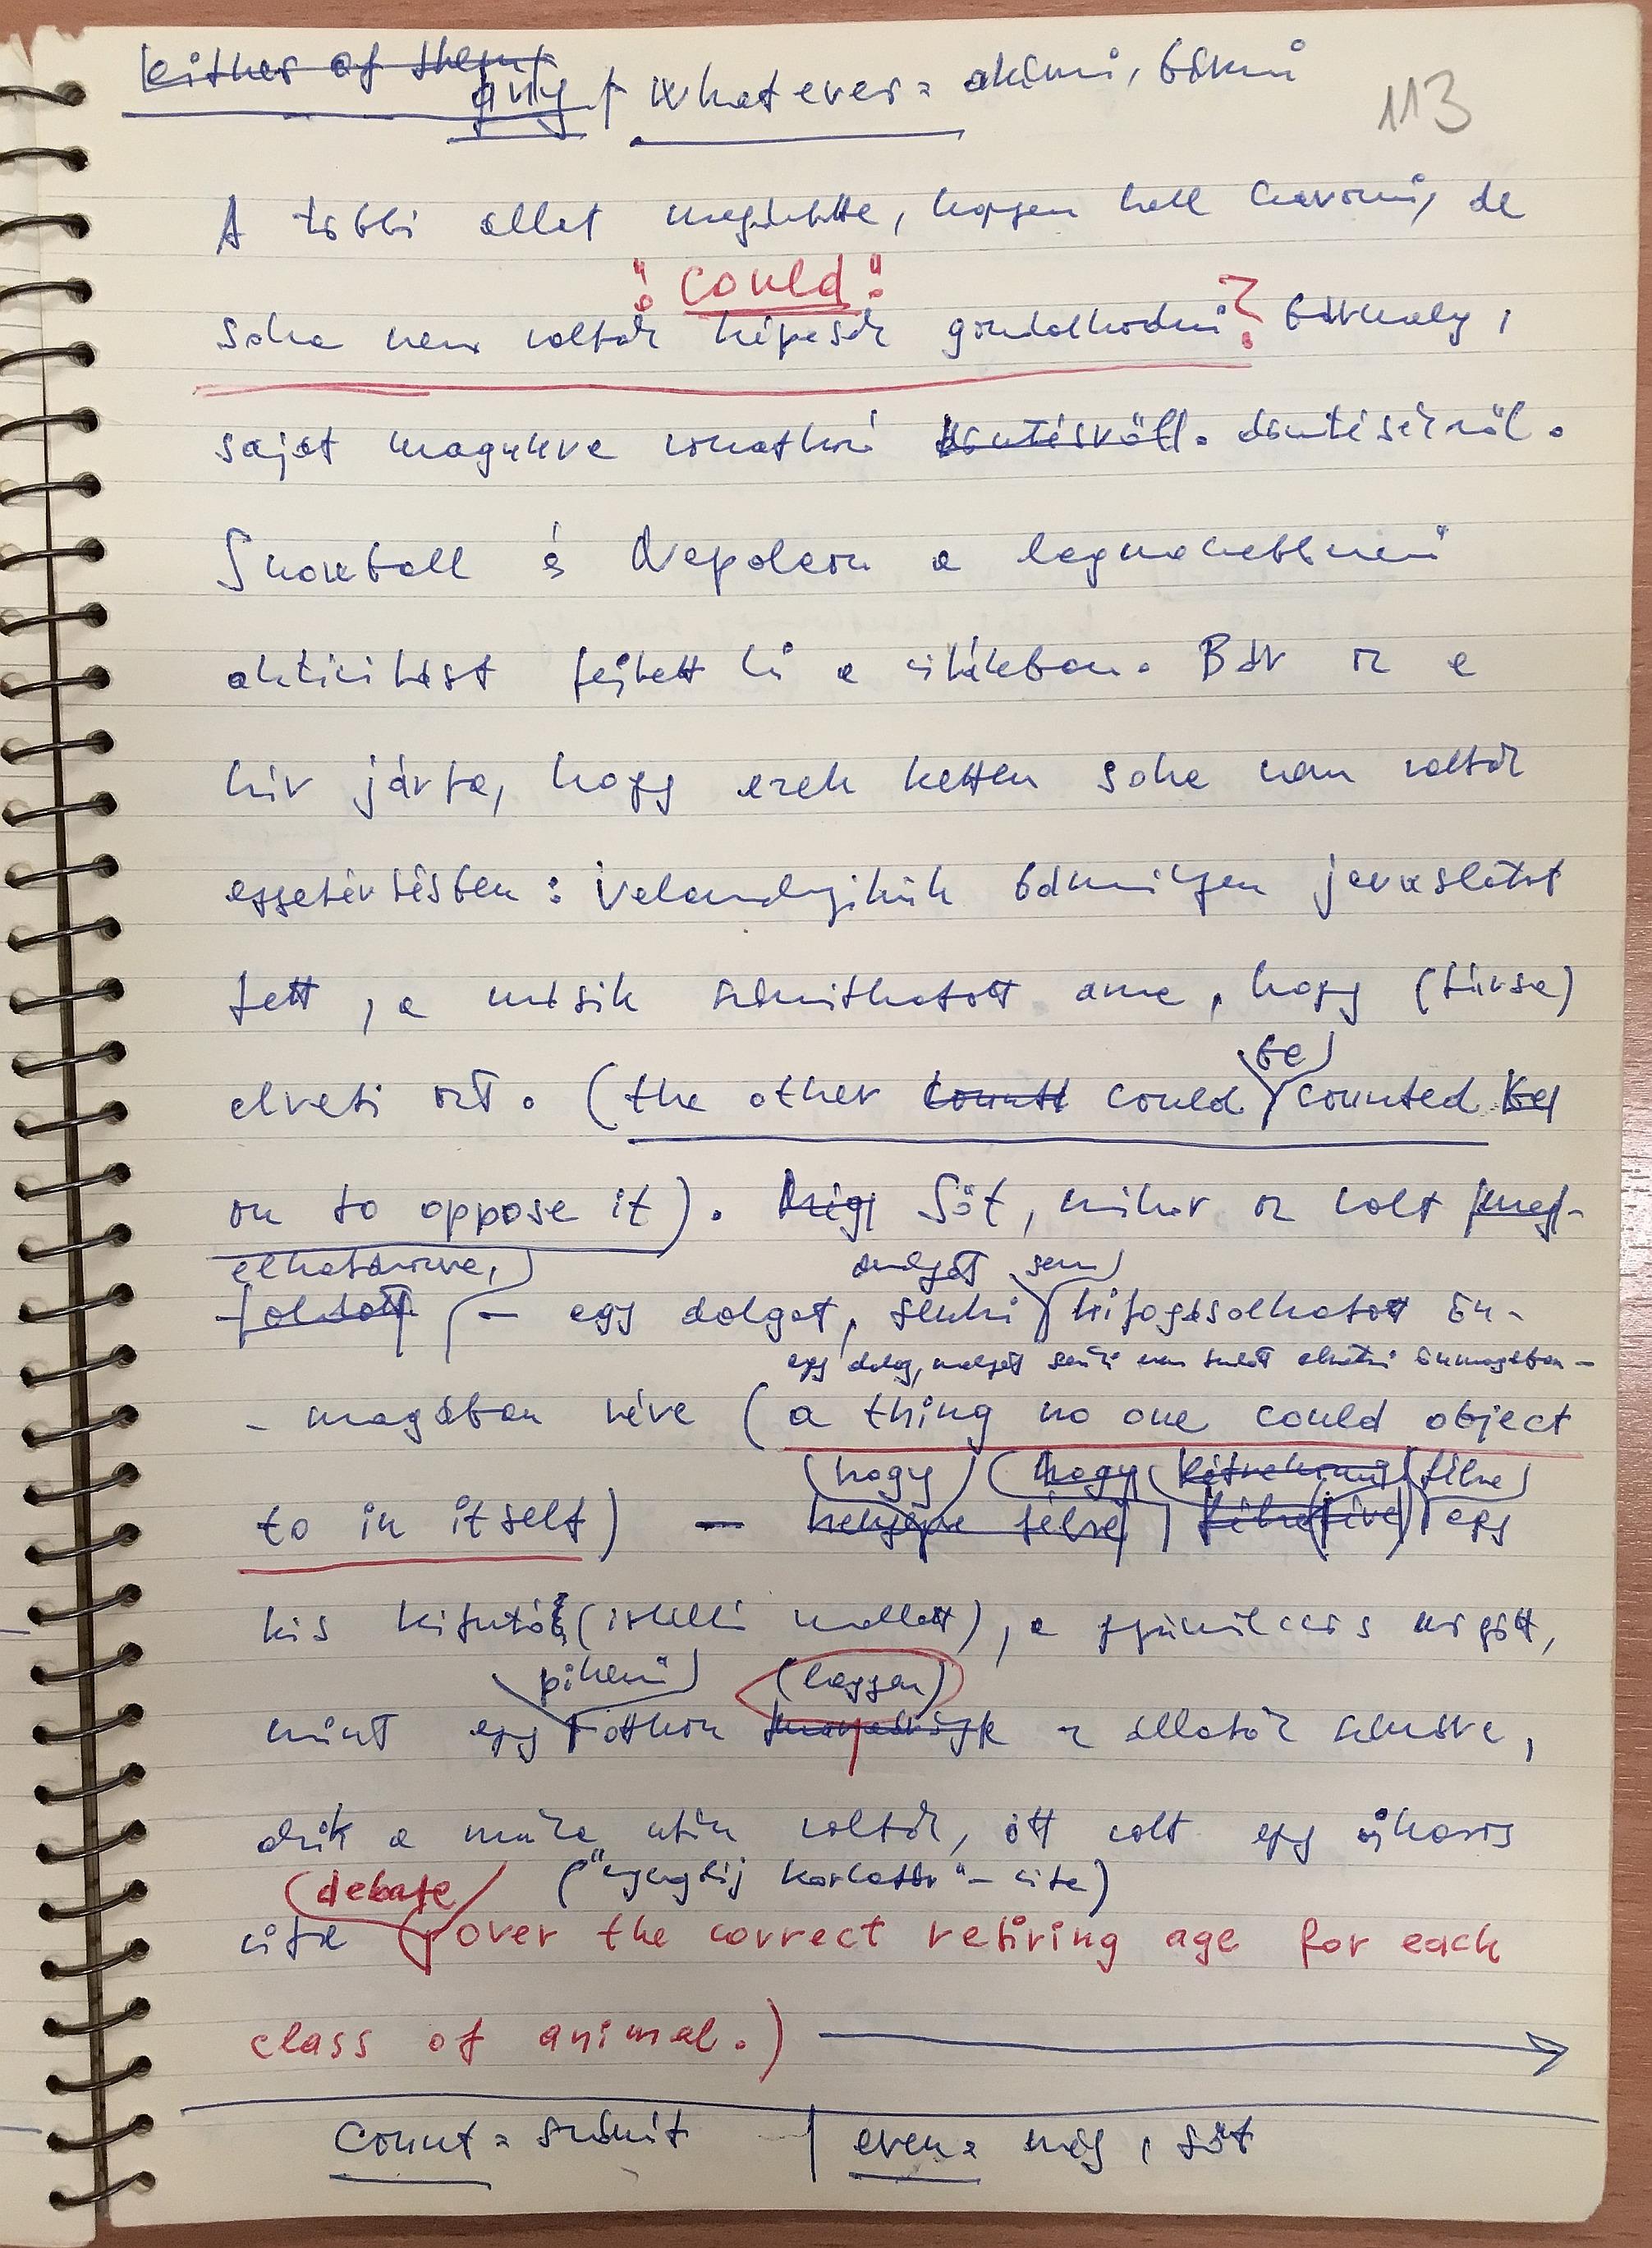 either of them
any / whatever = akármi, bármi
113
A többi állat megértette, hogyan kell szavazni, de
"could"
soha nem voltak képesek gondolkodni? bármely,
saját magukra vonatkozó döntésről. döntésükről.
Snowball és Napoleon a legmagasabbrendű
aktivitást fejtett ki a vitákban. Bár az a
hír járta, hogy ezek ketten soha nem voltak
egyetértésben: valamelyikük bármilyen javaslatot
tett, a másik számíthatott arra, hogy (társa)
elveti azt. (the other could be counted
on to oppose it). Még Sőt, mikor az volt meg-
elhatározva, amelyet sem
- egy dolgot, senki kifogásolhatott ön-
egy dolog, melyet senki nem tudott elvetni önmagában -
- magában véve (a thing no one could object
hogy hogy félre
to in itself) - egy
kis kifutót (istálló mellett), a gyümölcsös mögött,
pihenő (legyen)
mint egy otthon az állatok számára,
akik a munka után voltak, ott volt egy viharos
(debate ("nyugdíj korhatár" - vita)
vita over the correct retiring age for each
class of animal.)
count = számít | even = még, sőt